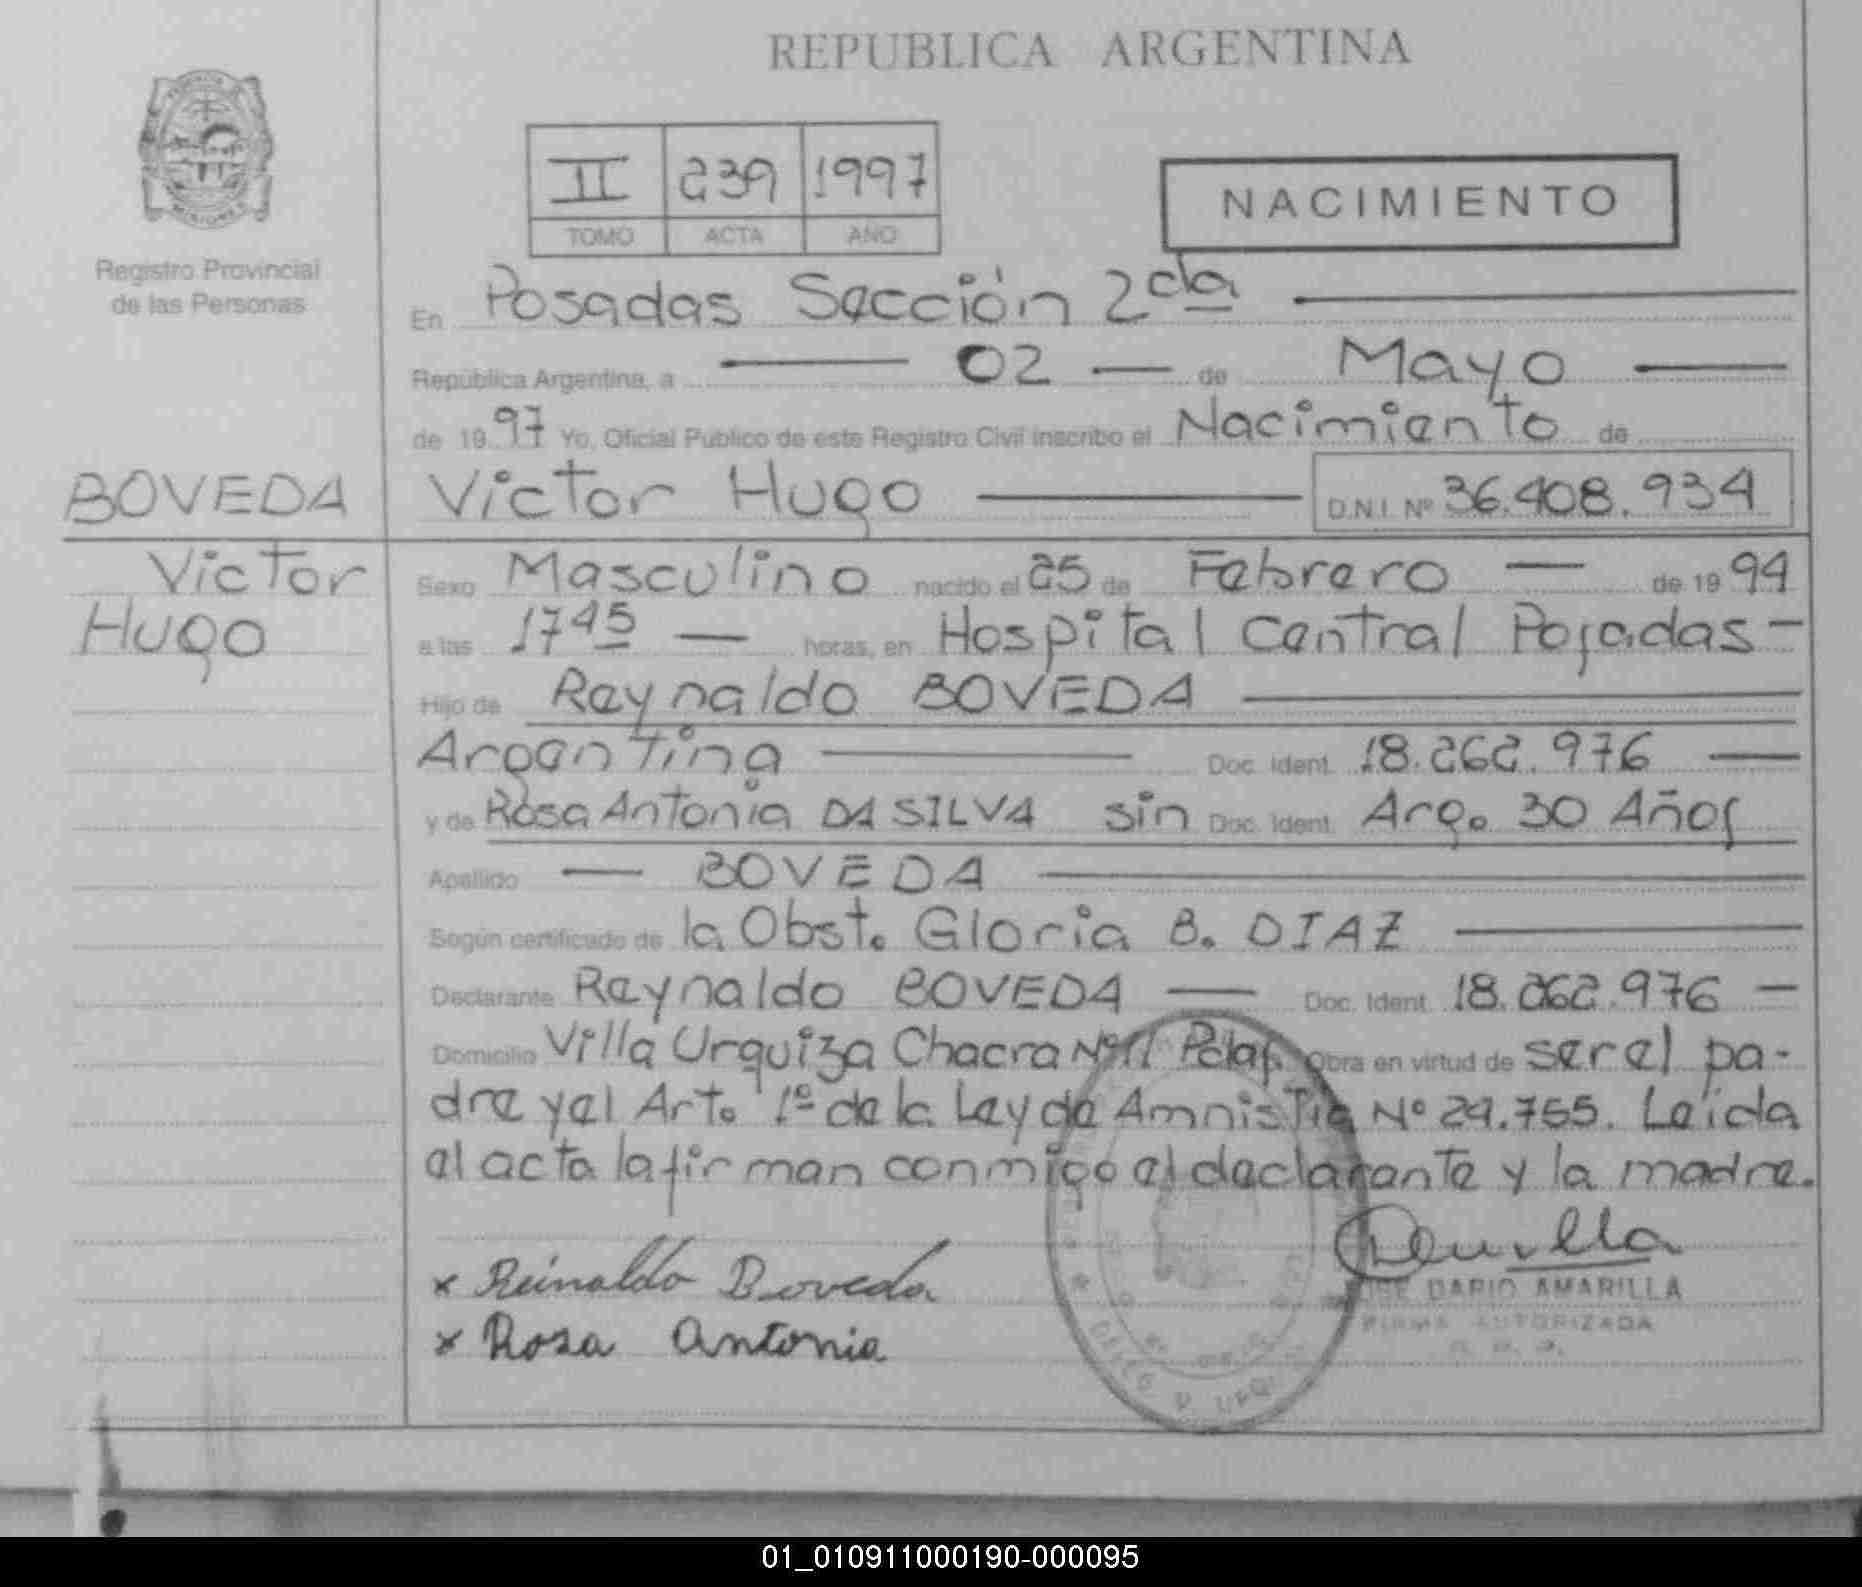 REPUBLICA ARGENTINA
II 239 1997
TOMO ACTA AÑO
NACIMIENTO
MISIONES
Registro Provincial
de las Personas
En Posadas Sección 2da
República Argentina, a 02 de Mayo
de 19 97 Yo, Oficial Público de este Registro Civil inscribo el Nacimiento de
BOVEDA Victor Hugo D.N.I. Nº 36.408.934
Victor Sexo Masculino nacido el 25 de Febrero de 19 94
Hugo a las 17 45 horas, en Hospital Central Posadas-
Hijo de Reynaldo BOVEDA
Argentina Doc. Ident. 18.262.976
y de Rosa Antonia DA SILVA sin Doc. Ident. Arg. 30 Años
Apellido BOVEDA
Según certificado de la Obst. Gloria B. DIAZ
Declarante Reynaldo BOVEDA Doc. Ident. 18.262.976
Domicilio Villa Urquiza Chacra Nº11 Pdas. Obra en virtud de ser el pa-
dre y el Art. 1º de la Ley de Amnistia Nº 24.755. Leída
el acta la firman conmigo el declarante y la madre.
x Reinaldo Boveda
x Rosa Antonia
JOSE DARIO AMARILLA
FIRMA AUTORIZADA
01_010911000190-000095